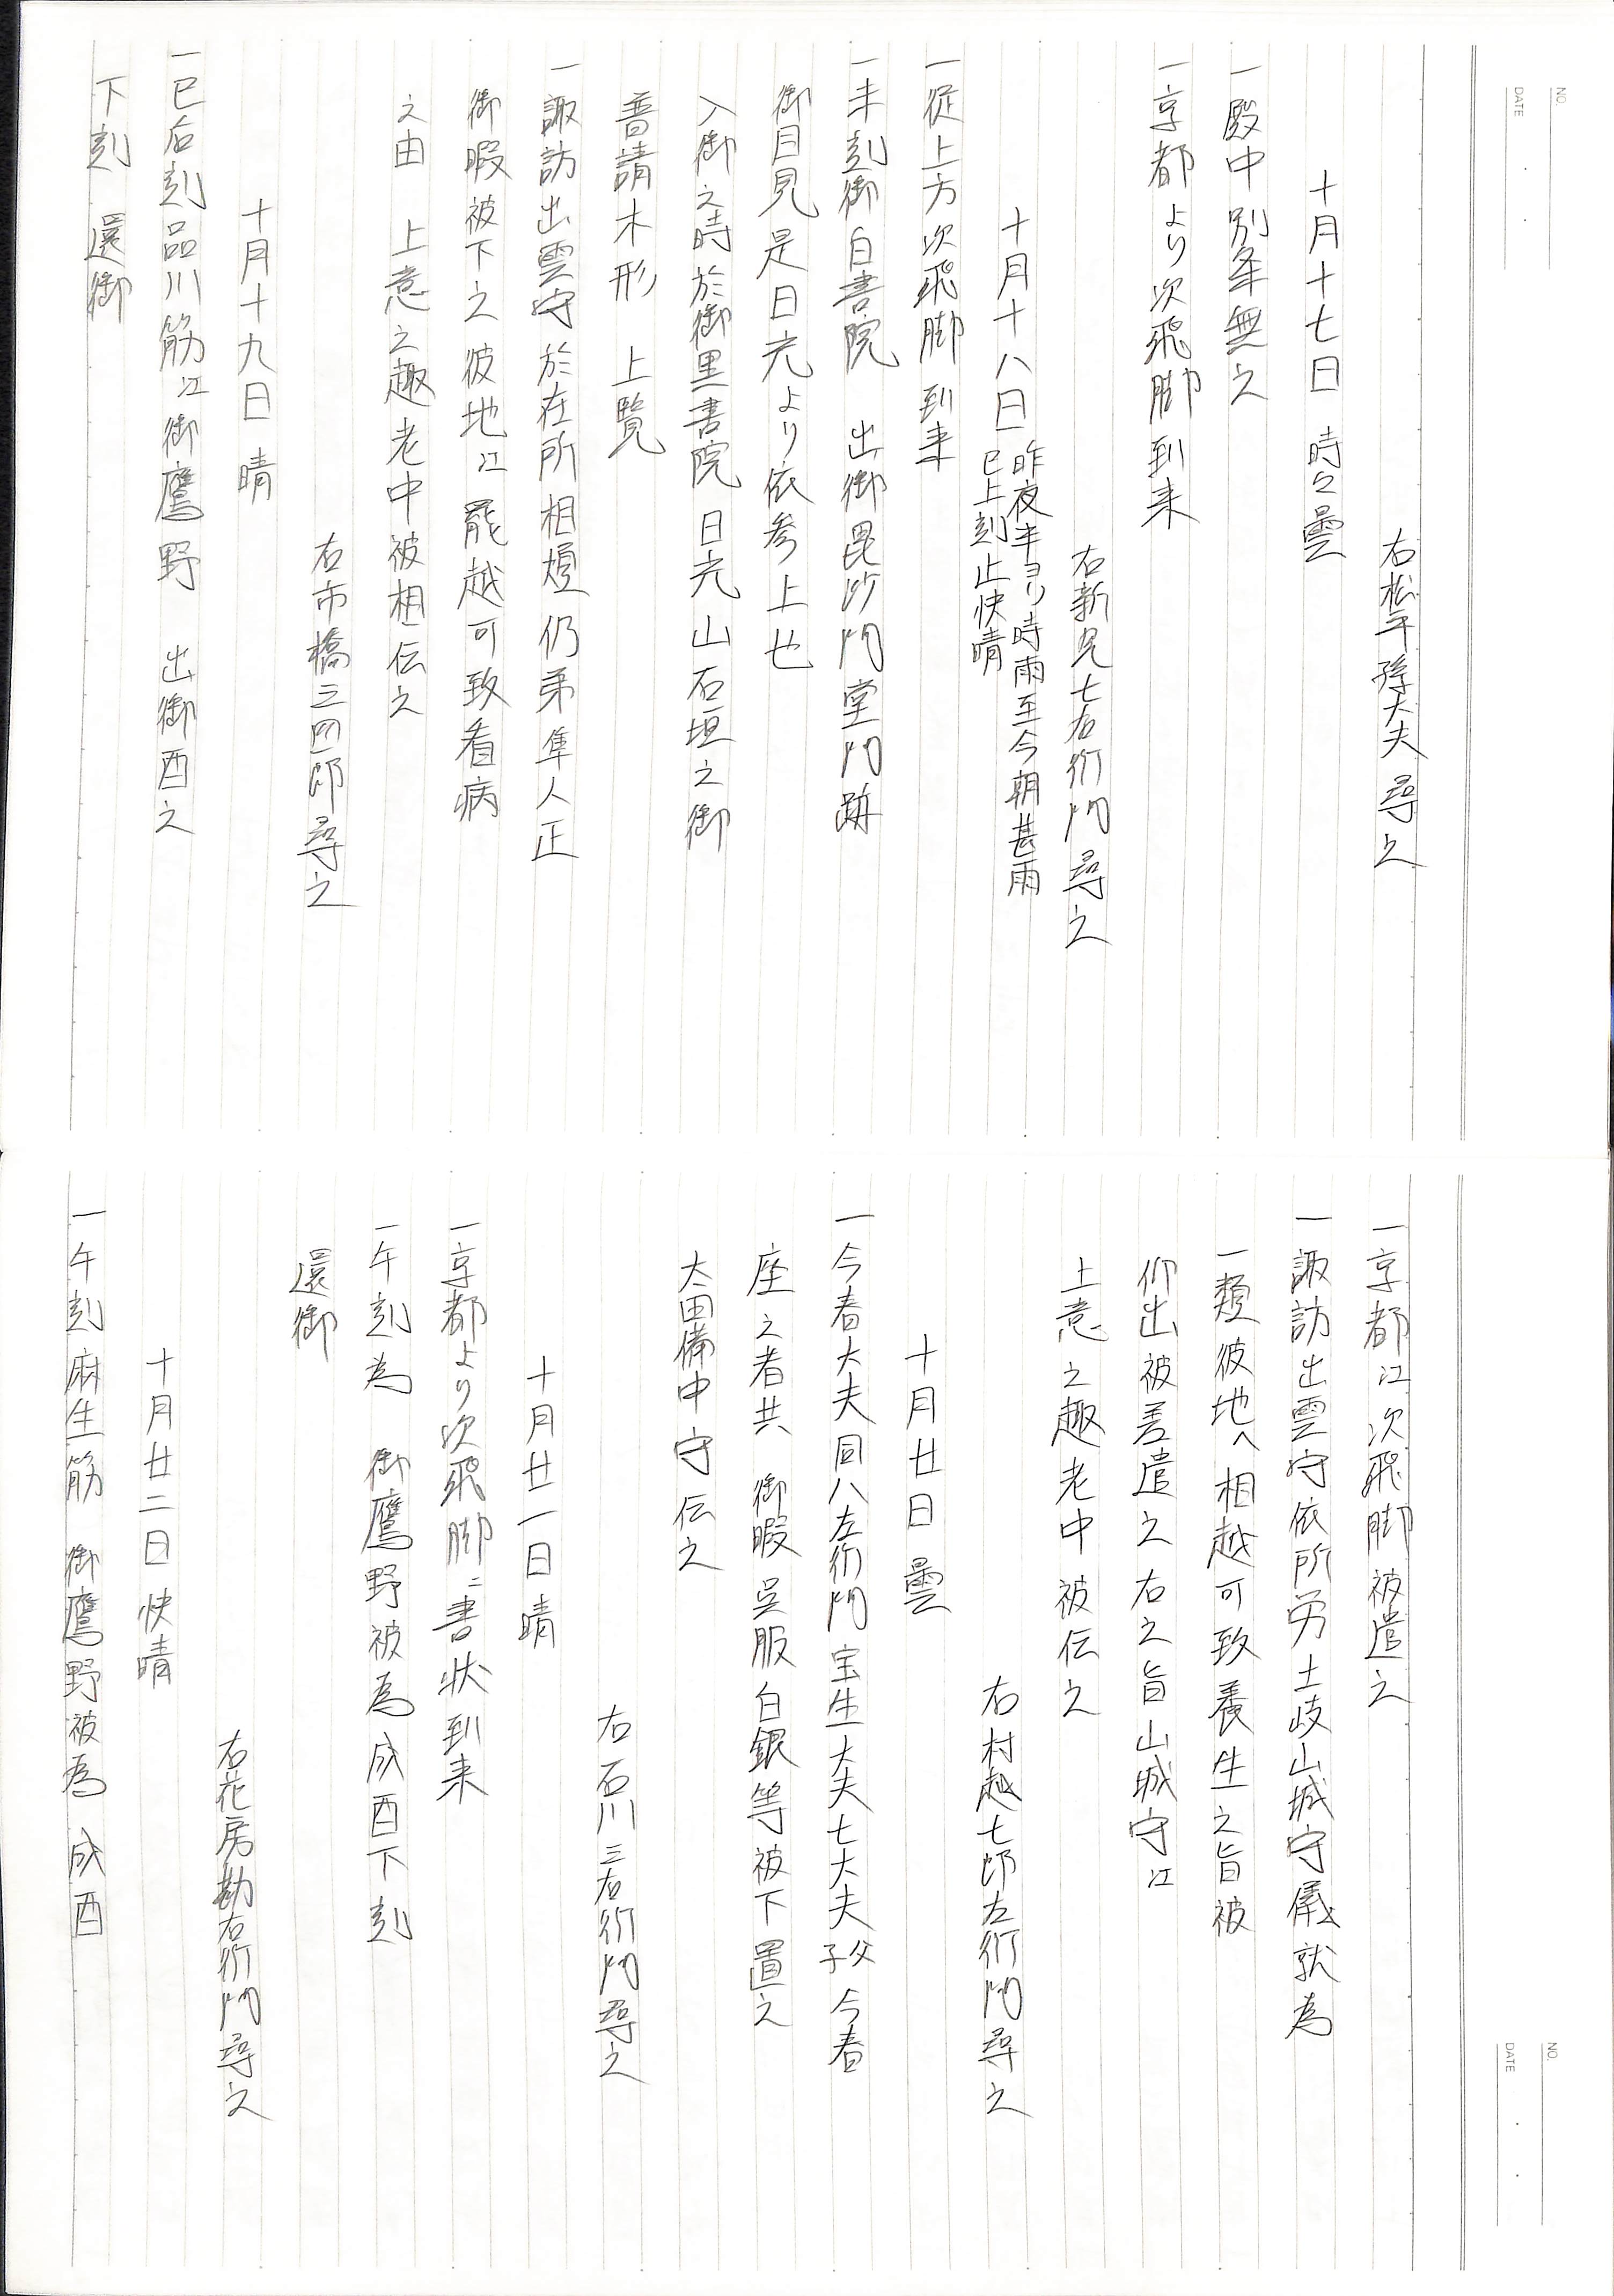 NO.
DATE
右松平孫大夫尋之
十月十七日 時々曇
一殿中別条無之
一京都より次飛脚到来
右新見七右衛門尋之
十月十八日 昨夜半ヨリ時雨至今朝甚雨
巳上刻止快晴
一従上方次飛脚到来
一未刻御白書院 出御毘沙門堂門跡
御目見是日光より依参上也
入御之時於御黒書院日光山石垣之御
普請木形 上覧
一諏訪出雲守於在所相煩仍弟隼人正
御暇被下之彼地江罷越可致看病
之由 上意之趣老中被相伝之
右市橋三四郎尋之
十月十九日 晴
一巳后刻品川筋江御鷹野 出御酉之
下刻 還御
NO.
DATE
一京都江次飛脚被遣之
一諏訪出雲守依所労土岐山城守儀就為
一類彼地へ相越可致養生之旨被
仰出被差遣之右之旨山城守江
上意之趣老中被伝之
右村越七郎左衛門尋之
十月廿日 曇
一今春大夫同八左衛門宝生大夫七大夫父子今春
座之者共 御暇呉服白銀等被下置之
太田備中守伝之
右石川三右衛門尋之
十月廿一日晴
一京都より次飛脚ニ書状到来
一午刻為 御鷹野被為成酉下刻
還御
右花房勘右衛門尋之
十月廿二日快晴
一午刻麻生筋 御鷹野被為 成酉